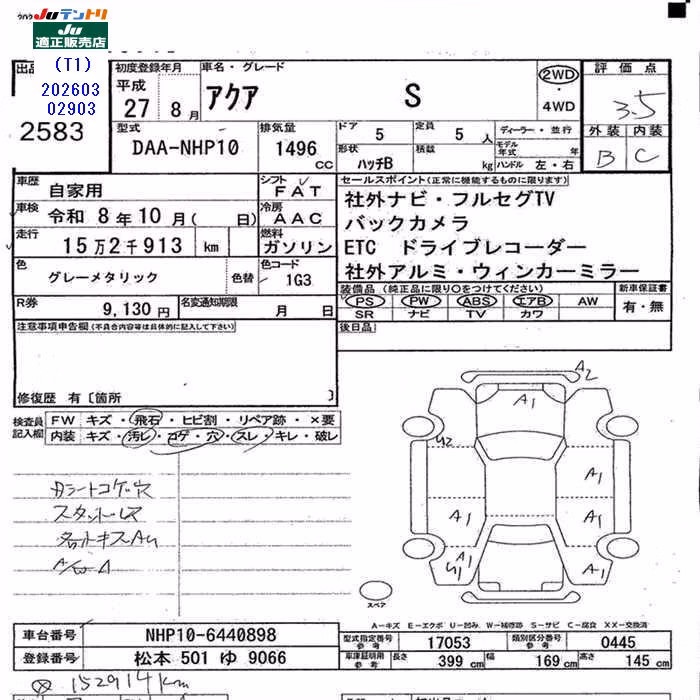 JU テントリ
JU
適正販売店
出品
(T1)
202603
02903
2583
初度登録年月
平成
27 8 月
車名・グレード
アクア S
2WD
4WD
評価点
3.5
外装 内装
B C
型式
DAA-NHP10
排気量
1496 CC
ドア 5
定員 5 人
形状 ハッチB
積載 kg
ディーラー・並行
モデル年式 年
ハンドル 左・右
車歴 自家用
シフト FAT
車検 令和 8年 10月( 日)
冷房 AAC
走行 15万2千913 km
燃料 ガソリン
色 グレーメタリック 色替
色コード 1G3
R券 9,130円
名変通知期限 月 日
セールスポイント(正常に機能するものに限ります)
社外ナビ・フルセグTV
バックカメラ
ETC ドライブレコーダー
社外アルミ・ウィンカーミラー
装備品(純正品に限り○をつけてください)
PS PW ABS エアB AW
SR ナビ TV カワ
新車保証書
有・無
後日品
注意事項申告欄(不具合内容等は具体的に記入して下さい)
修復歴 有〔箇所 〕
検査員記入欄
FW キズ・飛石・ヒビ割・リペア跡・×要
内装 キズ・汚レ・コゲ・穴・スレ・キレ・破レ
カラートコゲ穴
A2
A1
A1
A1
A1
A1
A1
スペア
A-キズ E-エクボ U-凹み W-補修跡 S-サビ C-腐食 XX-交換済
車台番号 NHP10-6440898
登録番号 松本 501 ゆ 9066
型式指定番号参考 17053
類別区分番号参考 0445
車庫証明用参考 長さ 399 cm 幅 169 cm 高さ 145 cm
152914km